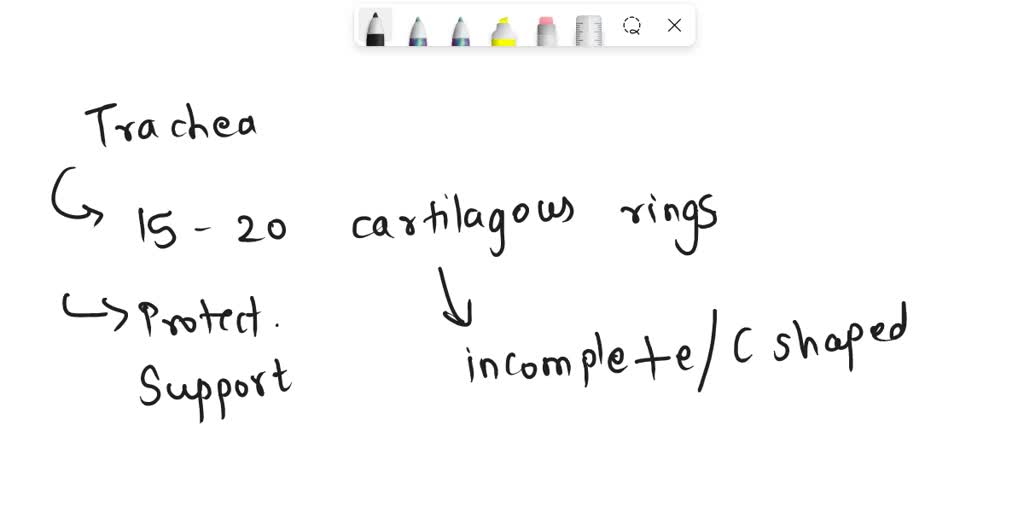 Trachea
15 - 20 cartilagous rings
Protect.
Support
incomplete/C shaped